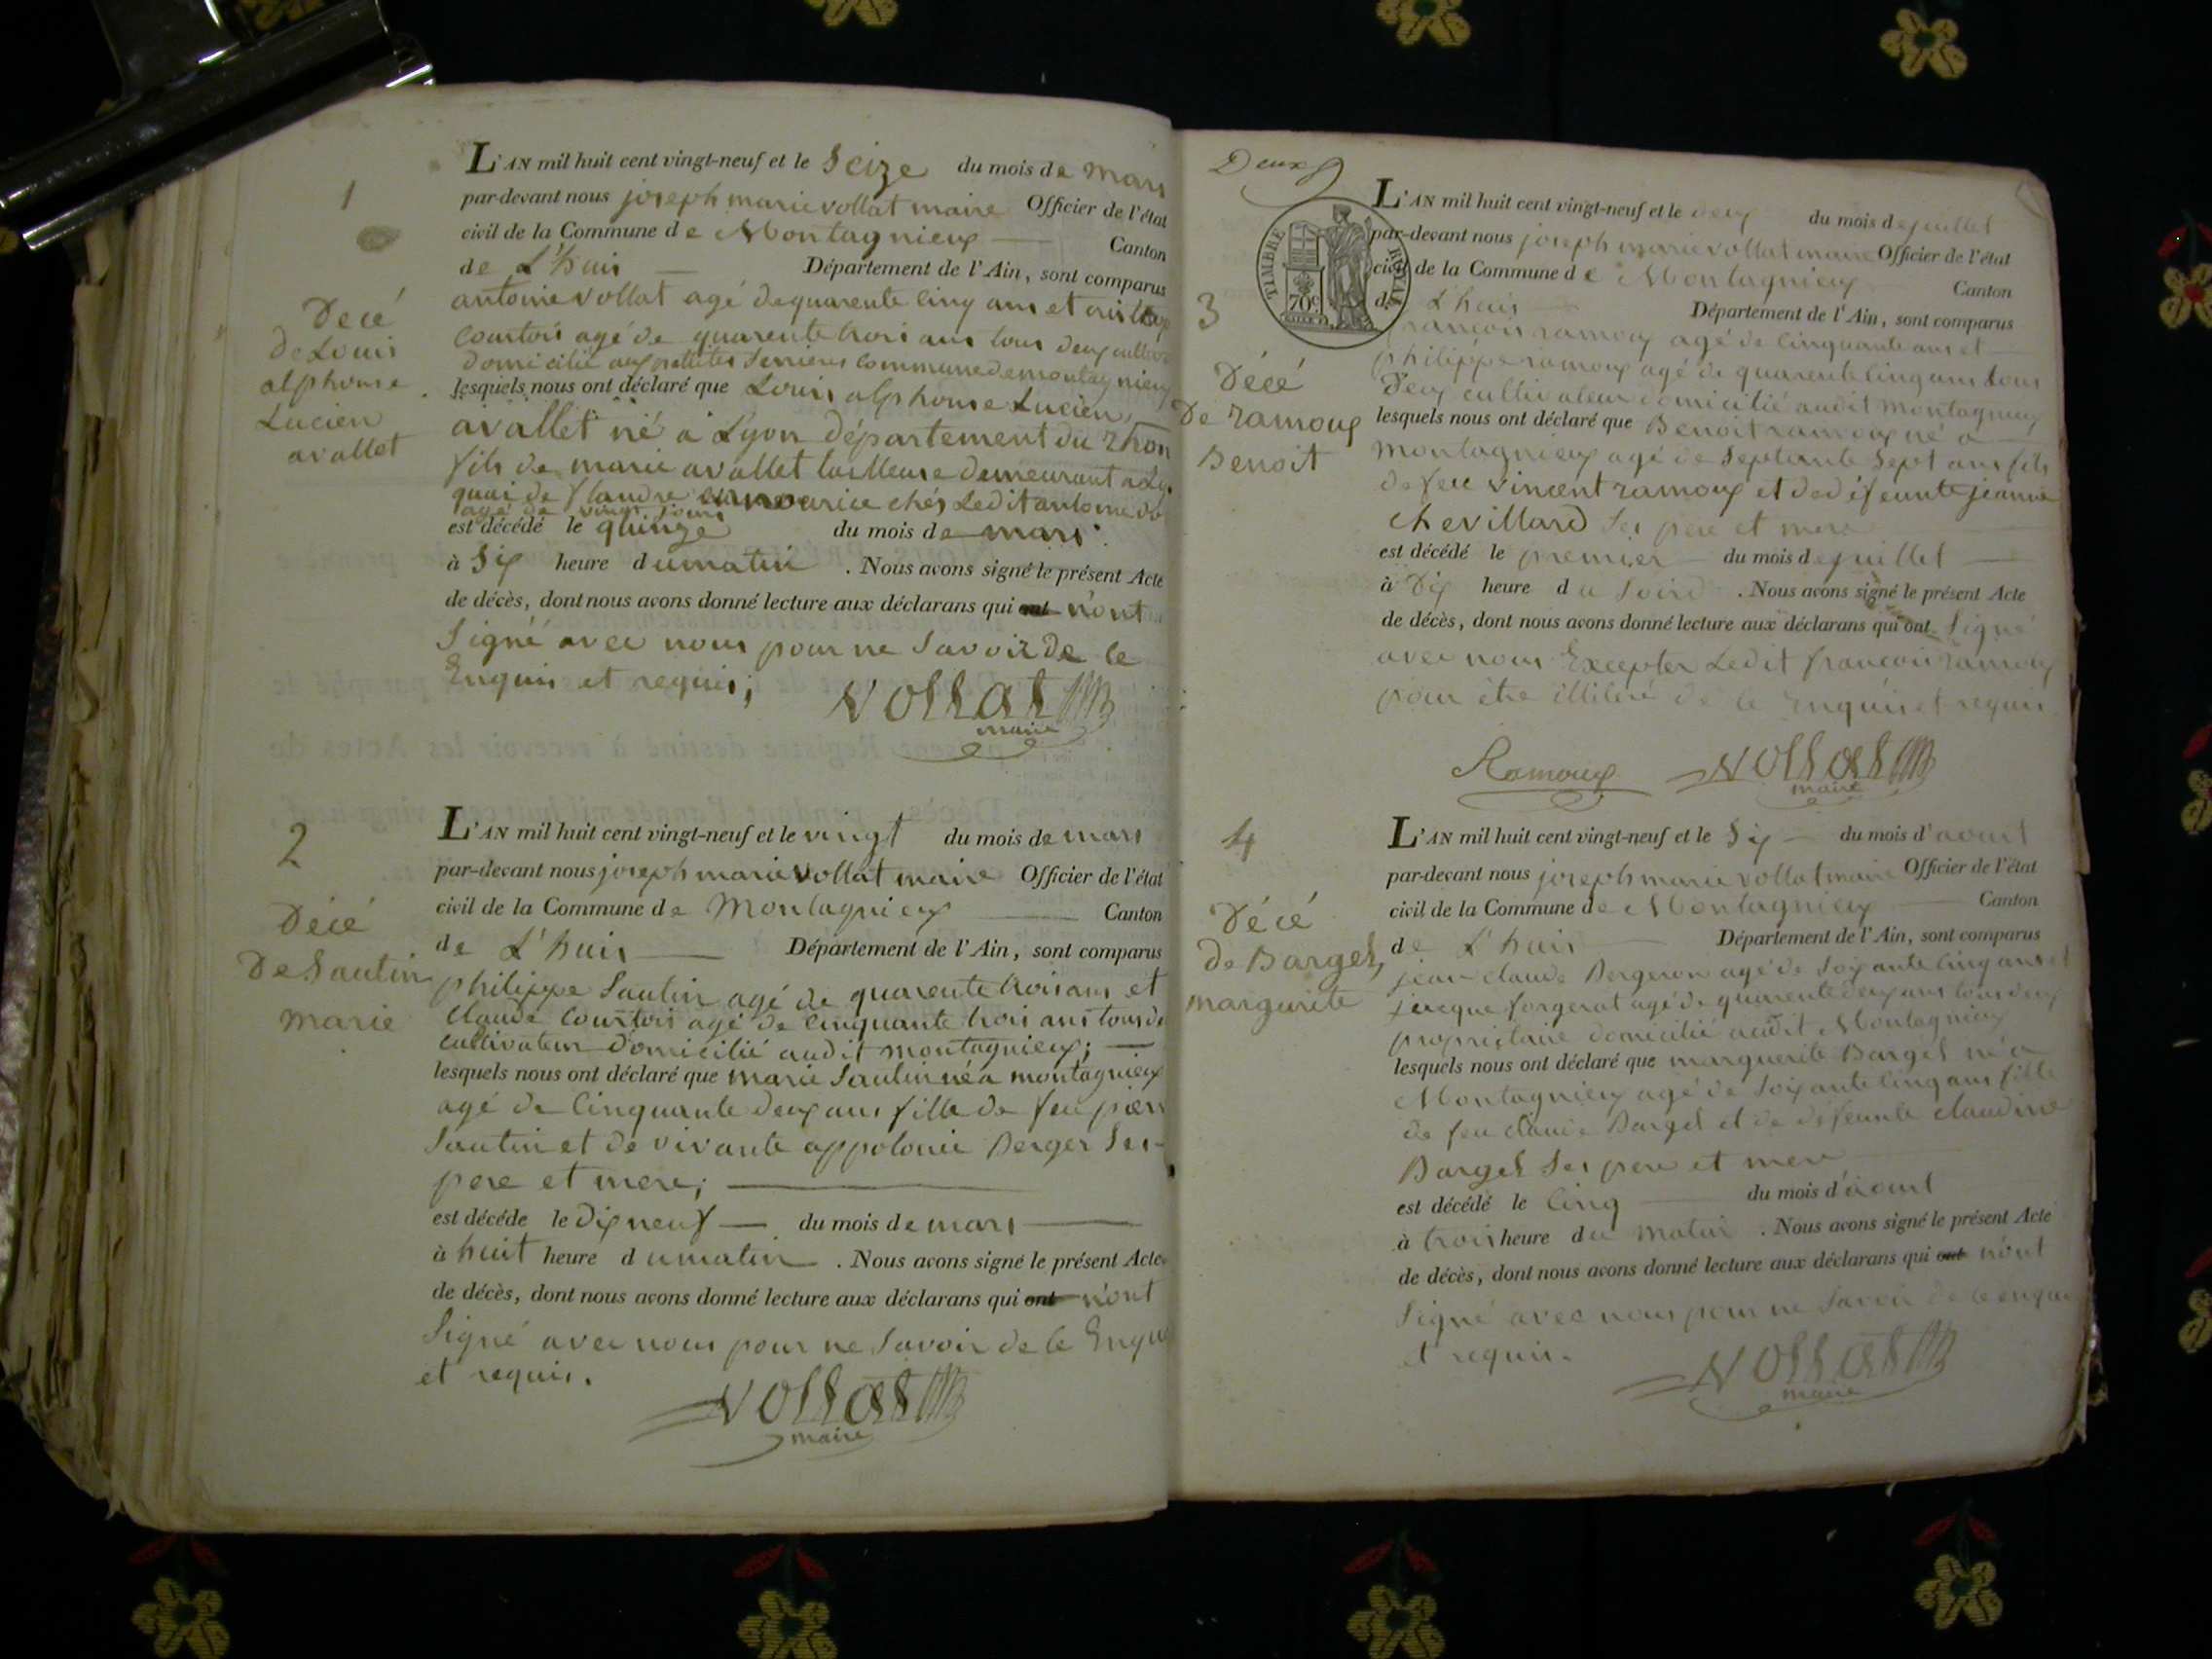 1
Decé
de Louis
alphonse
Lucien
avallet
L'AN mil huit cent vingt-neuf et le Seize du mois de mars
par-devant nous joseph marie vollat maire Officier de l'état
civil de la Commune de Montagnieux Canton
de L'huis Département de l'Ain, sont comparus
antoine vollat agé de quarente cinq ans et
Courtois agé de quarente trois ans tous deux
domicilié aux petittes Serrieres commune de montagnieux
lesquels nous ont déclaré que Louis alphonse Lucien
avallet né a Lyon département du Rhon
fils de marie avallet tailleuse demeurant a
quai de flandre en nourice chés Ledit antoine
agé de vingt jours
est décédé le quinze du mois de mars
à Six heure du matin . Nous avons signé le présent Acte
de décès, dont nous avons donné lecture aux déclarans qui ont n'ont
Signé avec nous pour ne Savoir de ce
Enquis et requis;
Vollat
maire
2
Décé
De Sautin
marie
L'AN mil huit cent vingt-neuf et le vingt du mois de mars
par-devant nous joseph marie vollat maire Officier de l'état
civil de la Commune de Montagnieux Canton
de L'huis Département de l'Ain, sont comparus
philippe Sautin agé de quarente trois ans et
claude Courtois agé de cinquante trois ans tous de
cultivateur domicilié audit montagnieux;
lesquels nous ont déclaré que marie Sautin né a montagnieux
agé de Cinquante deux ans fille de feu
Sautin et de vivante appolonie Berger Ses
pere et mere;
est décéde le dix neuf du mois de mars
à huit heure du matin . Nous avons signé le présent Acte
de décès, dont nous avons donné lecture aux déclarans qui ont n'ont
Signé avec nous pour ne Savoir de ce
et requis.
Vollat
maire
Deux
TIMBRE ROYAL
70c
3
Décé
De ramoux
Benoit
L'AN mil huit cent vingt-neuf et le deux du mois de juillet
par-devant nous joseph marie vollat maire Officier de l'état
civil de la Commune de Montagnieux Canton
de L'huis Département de l'Ain, sont comparus
francois ramoux agé de Cinquante ans et
philippe ramoux agé de quarente cinq ans tous
deux cultivateur domicilié audit montagnieux
lesquels nous ont déclaré que Benoit ramoux né a
montagnieux agé de Septante Sept ans fils
de feu vincent ramoux et de défeunte jeanne
chevillard Ses pere et mere
est décédé le premier du mois de juillet
à Dix heure du Soird . Nous avons signé le présent Acte
de décès, dont nous avons donné lecture aux déclarans qui ont Signé
avec nous Excepter Ledit francois ramoux
pour étre illiteré de ce Enquis et requis
Ramoux Vollat
maire
4
Décé
de Barget
margurite
L'AN mil huit cent vingt-neuf et le Six du mois d'aoust
par-devant nous joseph marie vollat maire Officier de l'état
civil de la Commune de Montagnieux Canton
de L'huis Département de l'Ain, sont comparus
jean claude Bergeron agé de Soixante cinq ans et
jacque forgerat agé de quarente deux ans tous deux
propriétaire domicilié audit Montagnieux
lesquels nous ont déclaré que marguerite Barget né a
Montagnieux agé de Soixante cinq ans fille
de feu claude Barget et de défeunte claudine
Barget Ses pere et mere
est décédé le Cinq du mois d'aoust
à trois heure du matin . Nous avons signé le présent Acte
de décès, dont nous avons donné lecture aux déclarans qui ont n'ont
Signé avec nous pour ne Savoir de ce
et requis.
Vollat
maire